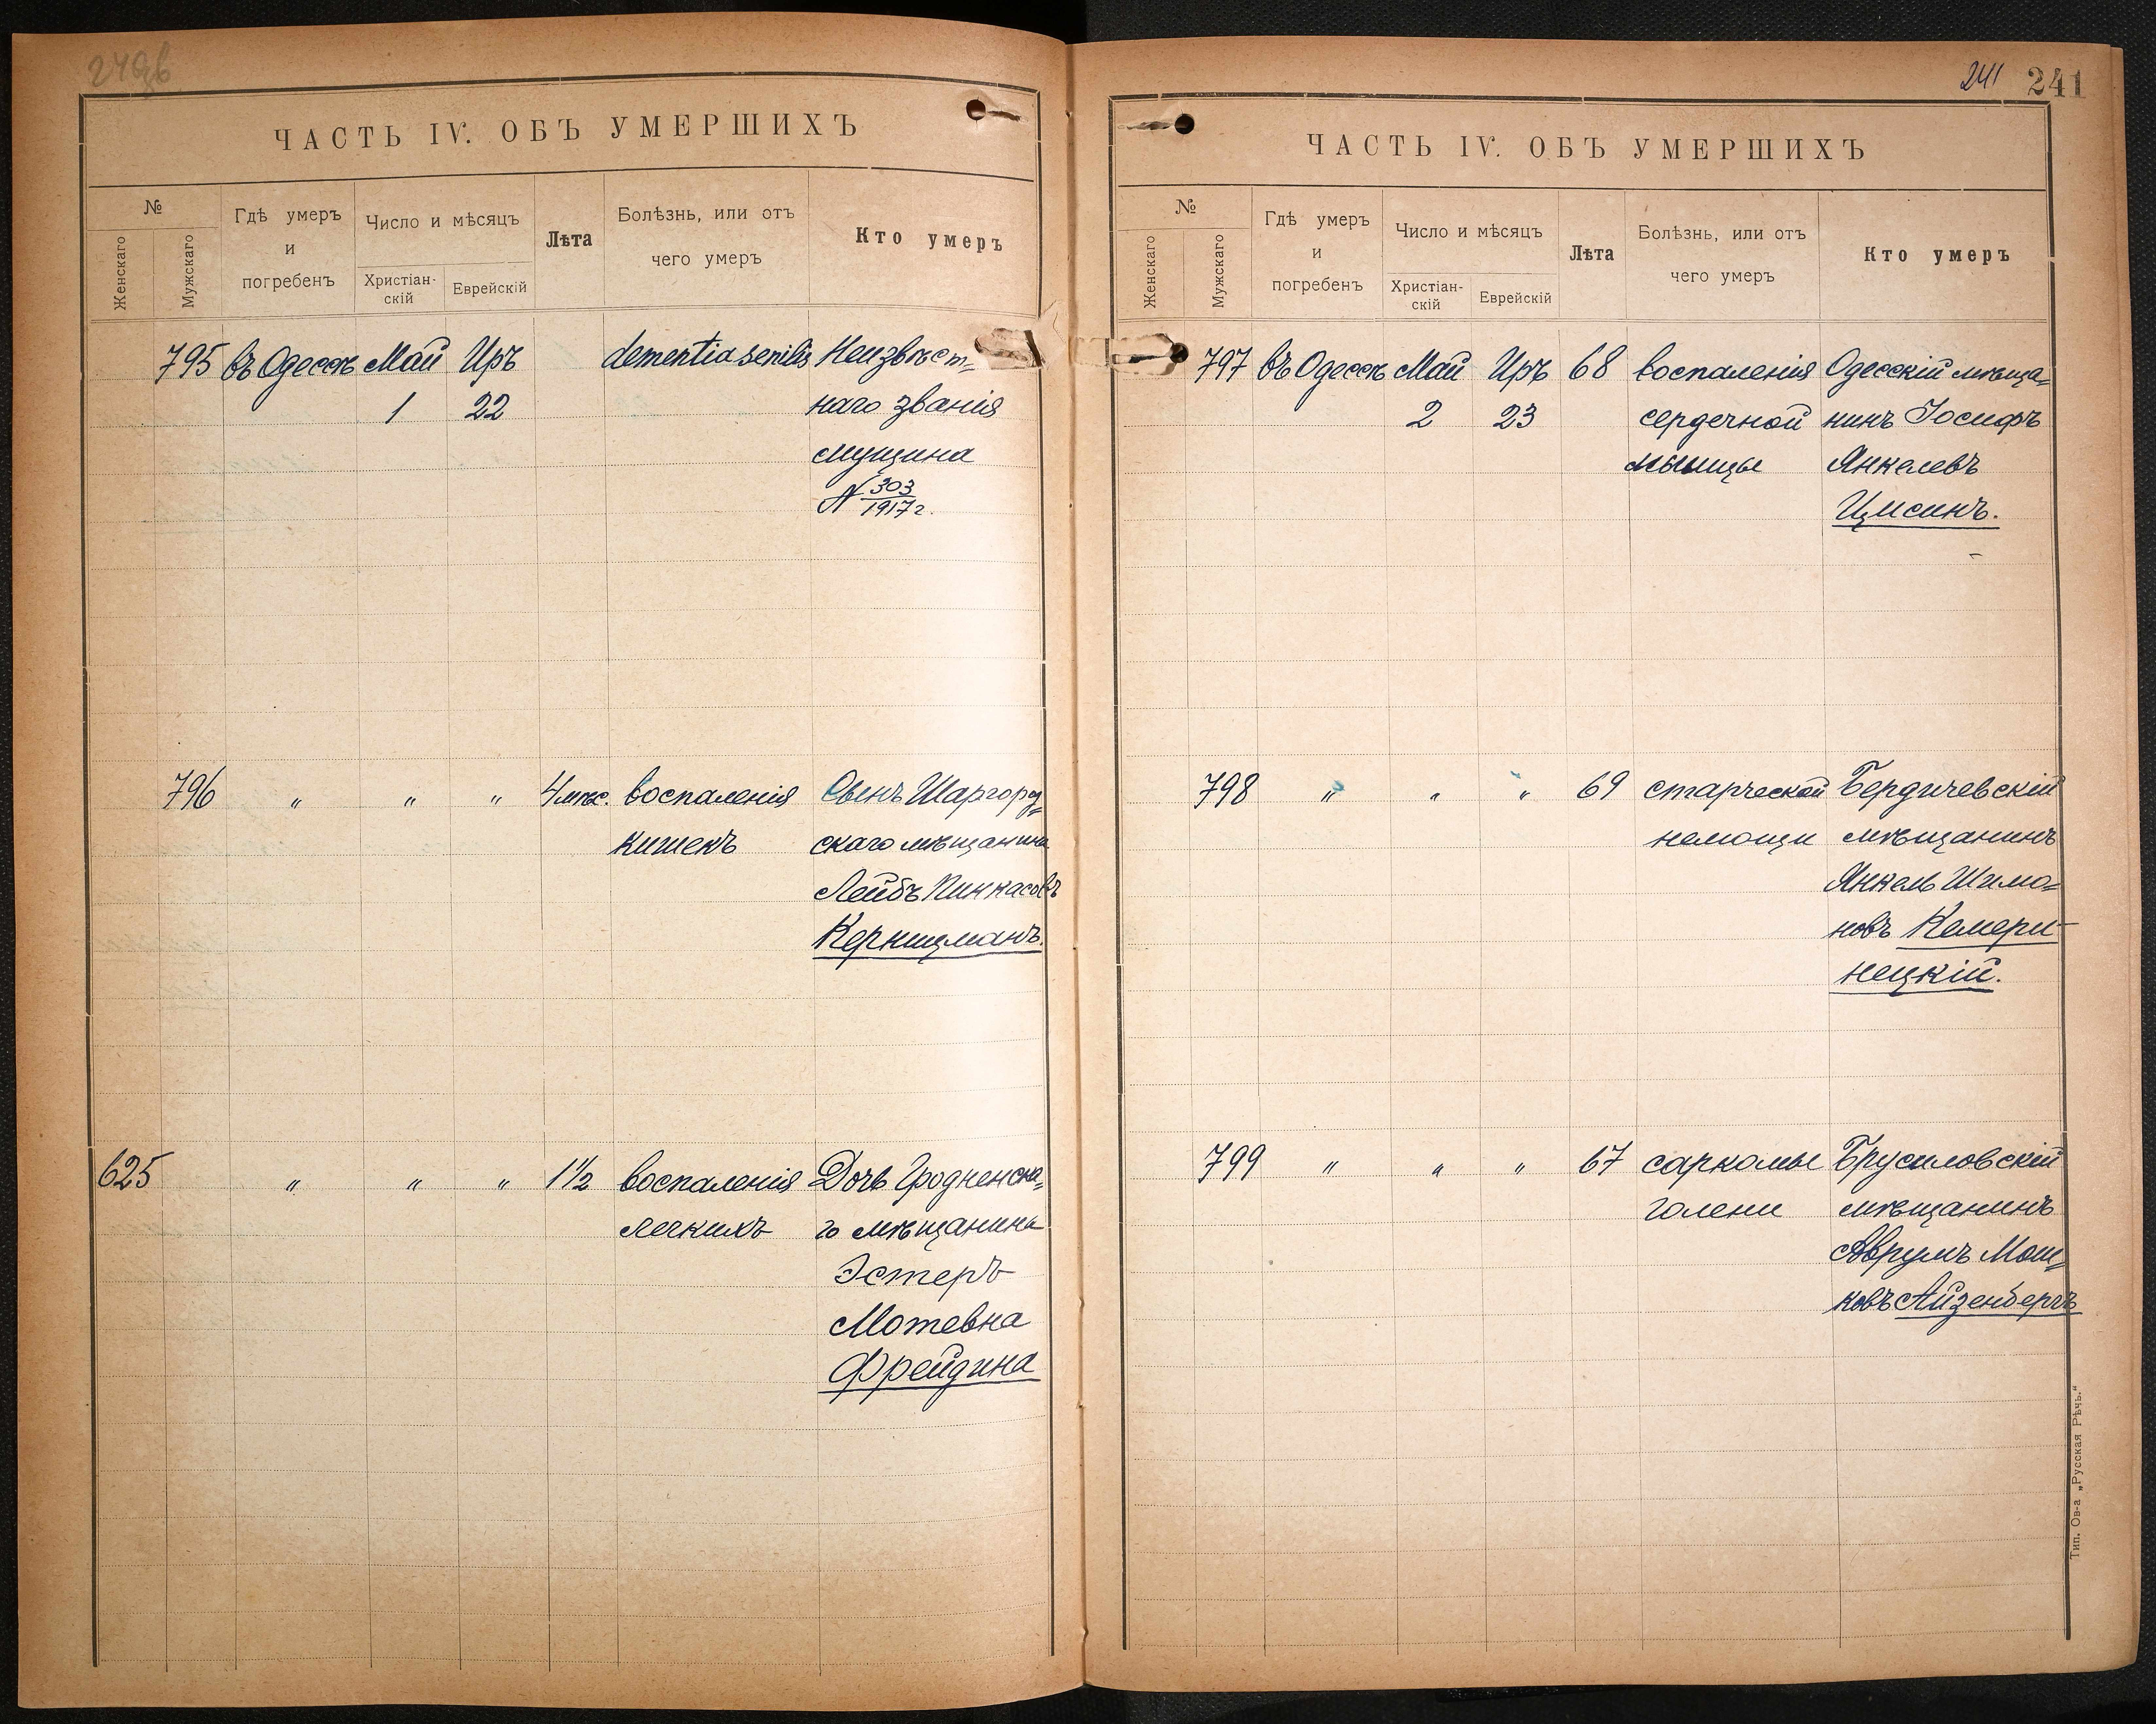 ЧАСТЬ IV. ОБЪ УМЕРШИХЪ
№
Женскаго
Мужскаго
Гдѣ умеръ
и
погребенъ
Число и мѣсяцъ
Христіан-
скій
Еврейскій
Лѣта
Болѣзнь, или отъ
чего умеръ
Кто умеръ
795 въ Одессѣ Май Иръ dementia senilis Неизвѣст=
1 22 наго званія
мущина
N 303/1917 г.
796 " " " 4 мѣс. воспаленія Сынъ Шаргород=
кишекъ скаго мѣщанина
Лейбъ Пинкасовъ
Керницманъ.
625 " " " 1½ воспаленія Дочь Гродненска=
легкихъ го мѣщанина
Эстеръ
Мотевна
Фрейдина
241 241
ЧАСТЬ IV. ОБЪ УМЕРШИХЪ
№
Женскаго
Мужскаго
Гдѣ умеръ
и
погребенъ
Число и мѣсяцъ
Христіан-
скій
Еврейскій
Лѣта
Болѣзнь, или отъ
чего умеръ
Кто умеръ
797 въ Одессѣ Май Иръ 68 воспаленія Одесскій мѣща=
2 23 сердечной нинъ Іосифъ
мышцы Янкелевъ
798 " " " 69 старческой Бердичевскій
немощи мѣщанинъ
Янкель Шимо=
новъ Кемери-
нецкій.
799 " " " 67 саркомы Брусиловскій
голени мѣщанинъ
Аврумъ Мош=
ковъ Айзенбергъ
Тип. Ов-а „Русская Рѣчь.“